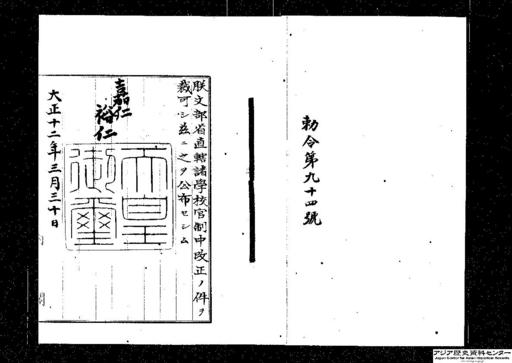 勅令第九十四號
朕文部省直轄諸學校官制中改正ノ件ヲ
裁可シ茲ニ之ヲ公布セシム
嘉仁
裕仁
天皇
御璽
大正十二年三月三十日
アジア歴史資料センター
Japan Center for Asian Historical Records